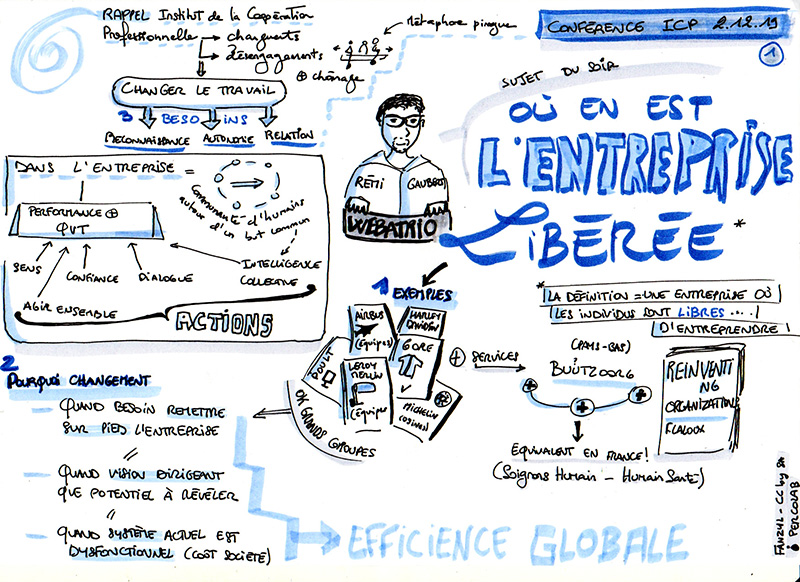 RAPPEL Institut de la Coopération
Professionnelle → changements
→ désengagements
⊕ chômage
Métaphore pirogue
CONFÉRENCE ICP 2.12.19
1
CHANGER LE TRAVAIL
3 BESOINS
RECONNAISSANCE AUTONOMIE RELATION
SUJET DU SOIR
OÙ EN EST
L'ENTREPRISE
LIBÉRÉE*
RÉMI GAUBERT
WEBATRIO
DANS L'ENTREPRISE =
Communauté d'humains
autour d'un but commun
PERFORMANCE ⊕
QVT
SENS
CONFIANCE
DIALOGUE
INTELLIGENCE
COLLECTIVE
AGIR ENSEMBLE
ACTIONS
* LA DÉFINITION = UNE ENTREPRISE OÙ
LES INDIVIDUS SONT LIBRES ....
D'ENTREPRENDRE !
1 EXEMPLES
AIRBUS
(équipes)
HARLEY
DAVIDSON
GORE
POULT
LEROY
MERLIN
(équipes)
MICHELIN
(usines)
OK GRANDS GROUPES
⊕ SERVICES
(PAYS-BAS)
BUÜTZORG
EQUIVALENT EN FRANCE !
(Soignons Humain - Humain Santé)
REINVENTI
NG
ORGANIZATION
F. LALOUX
2
POURQUOI CHANGEMENT
QUAND BESOIN REMETTRE
SUR PIED L'ENTREPRISE
//
QUAND VISION DIRIGEANT
QUE POTENTIEL À RÉVÉLER
//
QUAND SYSTÈME ACTUEL EST
DYSFONCTIONNEL (COÛT SOCIÉTÉ)
EFFICIENCE GLOBALE
FANZYL - CC by SA
PERCOLAB